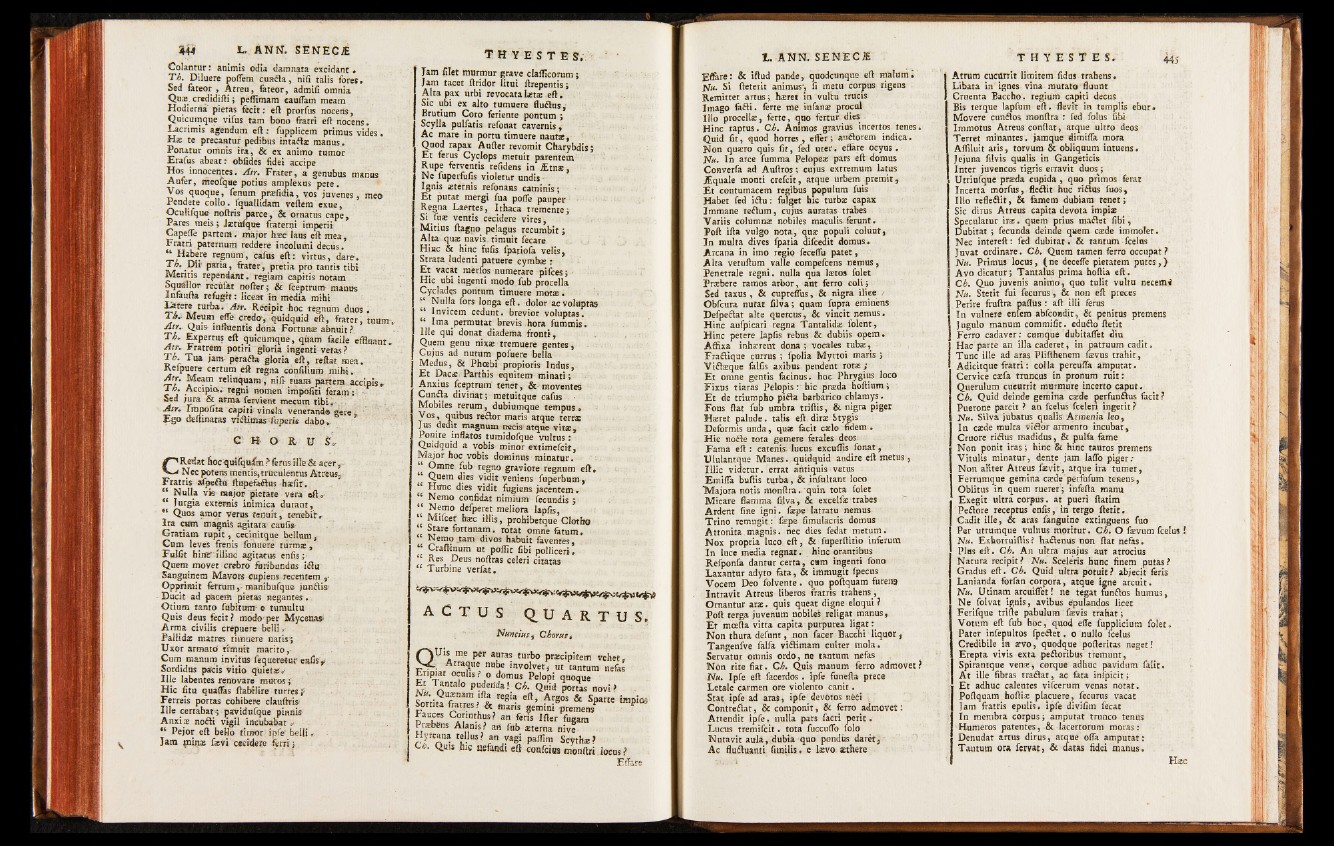 444 L. ANN. SENECÆ
Colantur: animis odia damnata excidant.
Th. Diluere possem cuncta, nisi talis foret.
Sed fateor, Atreu, fateor, admisi omnia
Quæ credidisti; pessimam caussam meam
Hodierna pietas fecit: est prorsus nocens,
Quicumque visus tam bono fratri est nocens.
Lacrimis agendum est: supplicem primus vides.
Hæ te precantur pedibus intactæ manus.
Ponatur omnis ira, & ex animo tumor
Erasus abeat: obsides fidei accipe
Hos innocentes. Atr. Frater, a genubus manus
Aufer, meosque potius amplexus pete.
Vos quoque, senum præsidia, vos juvenes, meo
Pendete collo. squallidam vestem exue,
Oculisque nostris parce, & ornatus cape,
Pares meis; lætusque fraterni imperii
Capesse partem. major hæc laus est mea,
Fratri paternum reddere incolumi decus.
“ Habere regnum, casus est: virtus, dare.
Th. Dii paria, frater, pretia pro tantis tibi
Meritis rependant. regiam capitis notam
Squallor recusat noster; & sceptrum manus
Infausta refugit: liceat in media mihi
Latere turba. Atr. Recipit hoc regnum duos.
Th. Meum esse credo, quidquid est, frater, tuum.
Atr. Quis influentis dona Fortunæ abnuit?
Th. Expertus est quicumque, quam facile effluant.
Atr. Fratrem potiri gloria ingenti vetas?
Th. Tua jam peracta gloria est, restat mea.
Respuere certum est regna consilium mihi.
Atr. Meam relinquam, nisi tuam partem accipis.
Th. Accipio. regni nomen impositi feram:
Sed jura & arma servient mecum tibi.
Atr. Imposita capiti vincla venerando gere,
Ego destinatas victimas superis dabo.
C H O R U S.
CRedat hoc quisquam? ferus ille & acer,
Nec potens mentis, truculentus Atreus,
Fratris aspectu stupefactus hæsit.
“ Nulla vis major pietate vera est.
“ Jurgia externis inimica durant,
“ Quos amor verus tenuit, tenebit.
Ira cum magnis agitata causis
Gratiam rupit, cecinitque bellum,
Cum leves frenis sonuere turmæ,
Fulsit hinc illinc agitatus ensis;
Quem movet crebro furibundus ictu
Sanguinem Mavors cupiens recentem,
Opprimit ferrum, manibusque junctis
Ducit ad pacem pietas negantes.
Otium tanto subitum e tumultu
Quis deus fecit? modo per Mycenas
Arma civilis crepuere belli.
Pallidæ matres timuere natis;
Uxor armato timuit marito,
Cum manum invitus sequeretur ensis,
Sordidus pacis vitio quietæ.
Ille labentes renovare muros;
Hic situ quassas stabilire turres;
Ferreis portas cohibere claustris
Ille certabat; pavidusque pinnis
Anxiæ nocti vigil incubabat.
“ Pejor est bello timor ipse belli.
Jam minæ sævi cecidere ferri;
T H Y E S T E S.
Jam silet murmur grave classicorum;
Jam tacet stridor litui strepentis;
Alta pax urbi revocata lætæ est.
Sic ubi ex alto tumuere fluctus,
Brutium Coro feriente pontum;
Scylla pulsatis resonat cavernis,
Ac mare in portu timuere nautæ,
Quod rapax Auster revomit Charybdis;
Et ferus Cyclops metuit parentem
Rupe ferventis residens in Ætnæ,
Ne superfusis violetur undis
Ignis æternis resonans caminis;
Et putat mergi sua posse pauper
Regna Laertes, Ithaca tremente;
Si suæ ventis cecidere vires,
Mitius stagno pelagus recumbit;
Alta quæ navis timuit secare
Hinc & hinc fusis spatiosa velis,
Strata ludenti patuere cymbæ:
Et vacat mersos numerare pisces;
Hic ubi ingenti modo sub procella
Cyclades pontum timuere motæ.
“ Nulla sors longa est. dolor ac voluptas
“ Invicem cedunt. brevior voluptas.
“ Ima permutat brevis hora summis.
Ille qui donat diadema fronti,
Quem genu nixæ tremuere gentes,
Cujus ad nutum posuere bella
Medus, & Phœbi propioris Indus,
Et Dacæ Parthis equitem minati;
Anxius sceptrum tenet, & moventes
Cuncta divinat; metuitque casus
Mobiles rerum, dubiumque tempus.
Vos, quibus rector maris atque terræ
Jus dedit magnum necis atque vitæ,
Ponite inflatos tumidosque vultus:
Quidquid a vobis minor extimescit,
Major hoc vobis dominus minatur.
“ Omne sub regno graviore regnum est.
“ Quem dies vidit veniens superbum,
“ Hunc dies vidit fugiens jacentem.
“ Nemo confidat nimium secundis;
“ Nemo desperet meliora lapsis,
“ Miscet hæc illis, prohibetque Clotho
“ Stare fortunam. rotat omne fatum.
“ Nemo tam divos habuit faventes,
“ Crastinum ut possit sibi polliceri.
“ Res Deus nostras celeri citatas
“ Turbine versat.
A C T U S Q U A R T U S.
Nuncius, Chorus.
QUis me per auras turbo præcipitem vehet,
Atraque nube involvet; ut tantum nefas
Eripiat oculis? o domus Pelopi quoque
Et Tantalo pudenda! Ch. Quid portas novi?
Nu. Quænam ista regia est, Argos & Sparte impios
Sortita fratres? & maris gemini premens
Fauces Corinthus? an feris Ister fugam
Præbens Alanis? an sub æterna nive
Hyrcana tellus? an vagi passim Scythæ?
Ch. Quis hic nefandi est conscius monstri locus?
Effare
L. ANN. SENECÆ
Effare: & istud pande, quodcunque est malum.
Nu. Si steterit animus, si metu corpus rigens
Remittet artus; hæret in vultu trucis
Imago facti. ferte me insanæ procul
Illo procellæ, ferte, quo fertur dies
Hinc raptus. Ch. Animos gravius incertos tenes.
Quid sit, quod horres, effer; auctorem indica.
Non quæro quis sit, sed uter. effare ocyus.
Nu. In arce summa Pelopeæ pars est domus
Conversa ad Austros; cujus extremum latus
Æquale monti crescit, atque urbem premit,
Et contumacem regibus populum suis
Habet sed ictu: fulget hic turbæ capax
Immane tectum, cujus auratas trabes
Variis columnæ nobiles maculis ferunt.
Post ista vulgo nota, quæ populi colunt,
In multa dives spatia discedit domus.
Arcana in imo regio secessu patet,
Alta vetustum valle compescens nemus,
Penetrale regni. nulla qua lætos solet
Præbere ramos arbor, aut ferro coli;
Sed taxus, & cupressus, & nigra ilice
Obscura nutat silva; quam supra eminens
Despectat alte quercus, & vincit nemus.
Hinc auspicari regna Tantalidæ solent,
Hinc petere lapsis rebus & dubiis opem.
Affixa inhærent dona; vocales tubæ,
Fractique currus; spolia Myrtoi maris;
Victæque falsis axibus pendent rotæ;
Et omne gentis facinus. hoc Phrygius loco
Fixus tiaras Pelopis: hic præda hostium;
Et de triumpho picta barbarico chlamys.
Fons stat sub umbra tristis, & nigra piger
Hæret palude. talis est diræ Stygis
Deformis unda, quæ facit cælo fidem.
Hic nocte tota gemere ferales deos
Fama est: catenis lucus excussis sonat,
Ululantque Manes. quidquid audire est metus,
Illic videtur. errat antiquis vetus
Emissa bustis turba, & insultant loco
Majora notis monstra. quin tota solet
Micare flamma silva, & excelsæ trabes
Ardent sine igni. sæpe latratu nemus
Trino remugit: sæpe simulacris domus
Attonita magnis. nec dies sedat metum.
Nox propria luco est, & superstitio inferum
In luce media regnat. hinc orantibus
Responsa dantur certa, cum ingenti sono
Laxantur adyto fata, & immugit specus
Vocem Deo solvente. quo postquam furens
Intravit Atreus liberos fratris trahens,
Ornantur aræ. quis queat digne eloqui?
Post terga juvenum nobiles religat manus,
Et mœsta vitta capita purpurea ligat:
Non thura desunt, non sacer Bacchi liquor,
Tangensve salsa victimam culter mola.
Servatur omnis ordo, ne tantum nefas
Non rite fiat. Ch. Quis manum ferro admovet?
Nu. Ipse est sacerdos. ipse funesta prece
Letale carmen ore violento canit.
Stat ipse ad aras, ipse devotos neci
Contrectat, & componit, & ferro admovet:
Attendit ipse. nulla pars sacri perit.
Lucus tremiscit. tota succusso solo
Nutavit aula, dubia quo pondus daret,
Ac fluctuanti similis. e lævo æthere
T H Y E S T E S. 445
Atrum cucurrit limitem sidus trahens.
Libata in ignes vina mutato fluunt
Cruenta Baccho. regium capiti decus
Bis terque lapsum est. flevit in templis ebur.
Movere cunctos monstra: sed solus sibi
Immotus Atreus constat, atque ultro deos
Terret minantes. jamque dimissa mora
Assiluit aris, torvum & obliquum intuens.
Jejuna silvis qualis in Gangeticis
Inter juvencos tigris erravit duos;
Utriusque præda cupida, quo primos ferat
Incerta morsus, flectit huc rictus suos,
Illo reflectit, & famem dubiam tenet;
Sic dirus Atreus capita devota impiæ
Speculatur iræ. quem prius mactet sibi,
Dubitat; secunda deinde quem cæde immolet.
Nec interest: sed dubitat. & tantum scelus
Juvat ordinare. Ch. Quem tamen ferro occupat?
Nu. Primus locus, (ne deesse pietatem putes,)
Avo dicatur; Tantalus prima hostia est.
Ch. Quo juvenis animo, quo tulit vultu necem?
Nu. Stetit sui securus, & non est preces
Perire frustra passus: ast illi ferus
In vulnere ensem abscondit, & penitus premens
Jugulo manum commisit. educto stetit
Ferro cadaver: cumque dubitasset diu
Hac parte an illa caderet, in patruum cadit.
Tunc ille ad aras Plisthenem sævus trahit,
Adicitque fratri: colla percussa amputat.
Cervice cæsa truncus in pronum ruit:
Querulum cucurrit murmure incerto caput.
Ch. Quid deinde gemina cæde perfunctus facit?
Puerone parcit? an scelus sceleri ingerit?
Nu. Silva jubatus qualis Armenia leo,
In cæde multa victor armento incubat,
Cruore rictus madidus, & pulsa fame
Non ponit iras; hinc & hinc tauros premens
Vitulis minatur, dente jam lasso piger:
Non aliter Atreus sævit, atque ira tumer,
Ferrumque gemina cæde perfusum tenens,
Oblitus in quem rueret; infesta manu
Exegit ultra corpus. at pueri statim
Pectore receptus ensis, in tergo stetit.
Cadit ille, & aras sanguine extinguens suo
Per utrumque vulnus moritur. Ch. O sævum scelus!
Nu. Exhorruistis? hactenus non stat nefas.
Plus est. Ch. An ultra majus aut atrocius
Natura recipit? Nu. Sceleris hunc finem putas?
Gradus est. Ch. Quid ultra potuit? abjecit feris
Lanianda forsan corpora, atque igne arcuit.
Nu. Utinam arcuisset! ne tegat functos humus,
Ne solvat ignis, avibus epulandos licet
Ferisque triste pabulum sævis trahat;
Votum est sub hoc, quod esse supplicium solet.
Pater insepultos spectet. o nullo scelus
Credibile in ævo, quodque posteritas neget!
Erepta vivis exta pectoribus tremunt,
Spirantque venæ, corque adhuc pavidum salit.
At ille fibras tractat, ac fata inspicit;
Et adhuc calentes viscerum venas notat.
Postquam hostiæ placuere, securus vacat
Jam fratris epulis. ipse divisim secat
In membra corpus; amputat trunco tenus
Humeros patentes, & lacertorum moras:
Denudat artus dirus, atque ossa amputat:
Tantum ora servat, & datas fidei manus.
Hæc